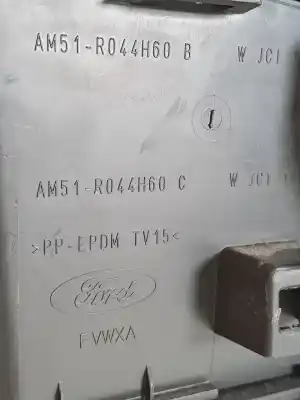 AM51-R044H60 B W JCI
1
AM51-R044H60 C W JCI
>PP-EPDM TV15<
Ford
FVWXA